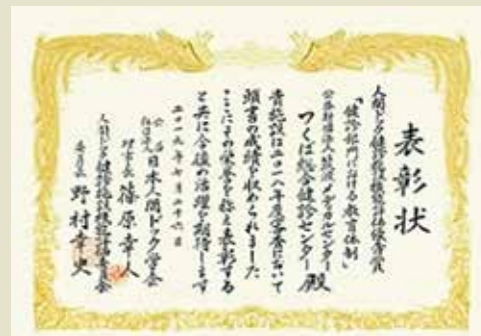 表彰状
人間ドック健診施設機能評価優秀賞
「健診部門における教育体制」
公益財団法人筑波メディカルセンター
つくば総合健診センター 殿
貴施設は二〇一八年度審査において
頭書の成績を収められました
ここにその栄誉を称え表彰する
と共に今後の活躍を期待します
二〇一九年七月二十六日
公益社団法人 日本人間ドック学会
理事長 篠原幸人
人間ドック健診施設機能評価委員会
委員長 野村幸史